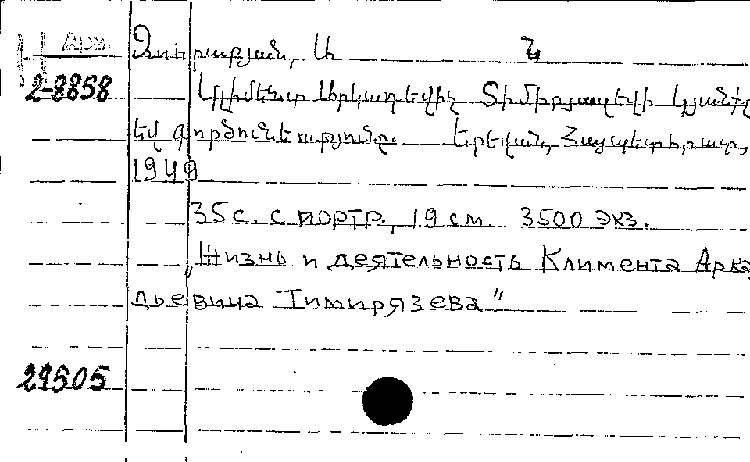 Н Арм
2-8858
Զուրաբյան, Ա Ն
Կլիմենտ Արկադեվիչ Տիմիրյազեվի կյանքը
եվ գործունեությունը. Երեվան, Հայպետհրատ,
1949
35 с. с портр., 19 см. 3500 экз.
„Жизнь и деятельность Климента Арка
дьевича Тимирязева"
29505